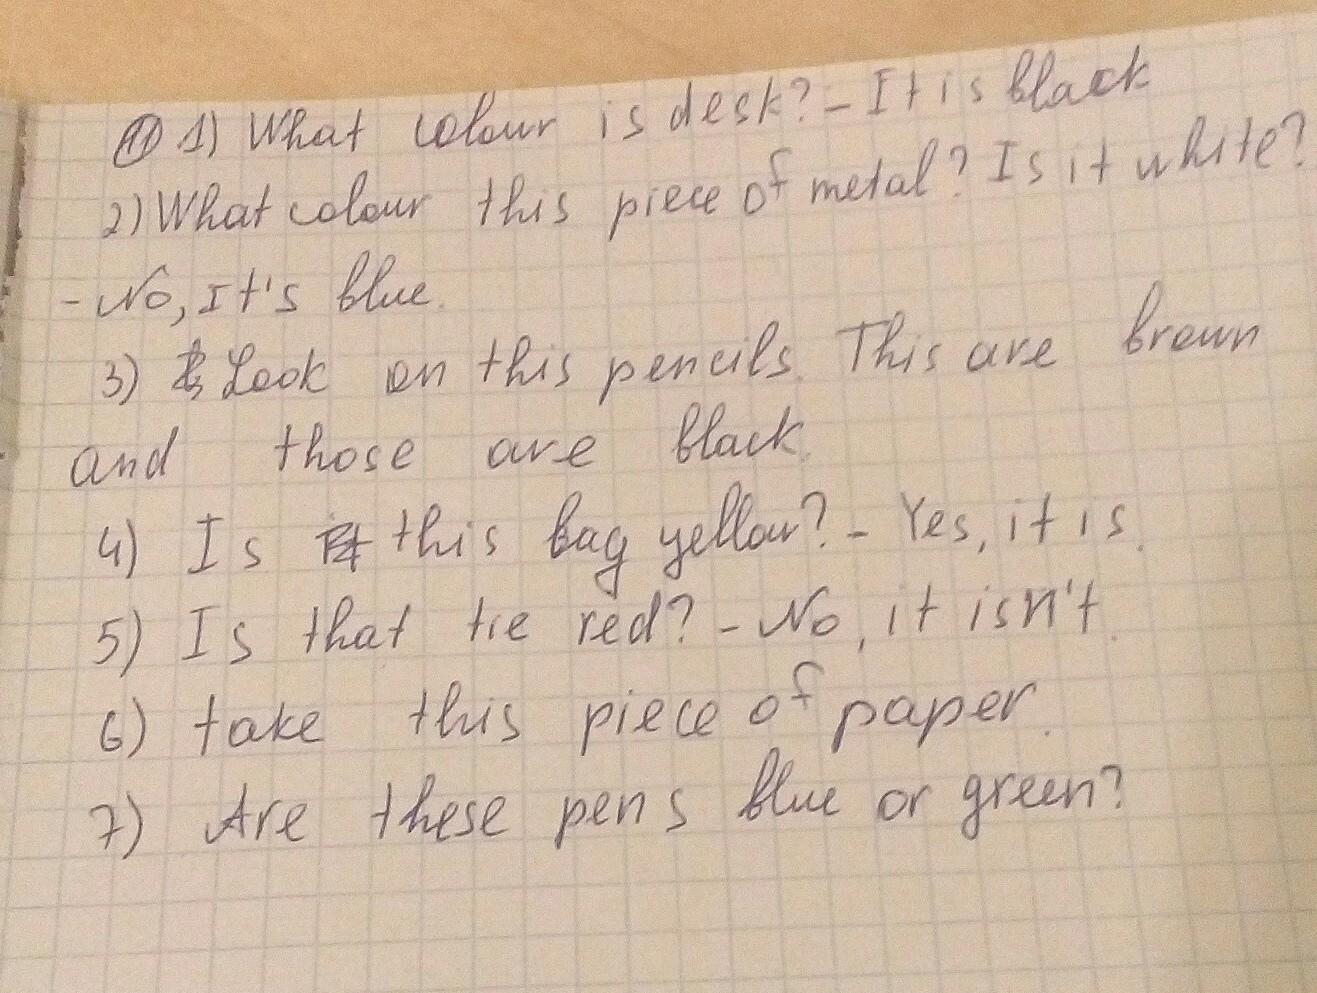 11 1) What colour is desk? - It is black
2) What colour this piece of metal? Is it white?
- No, It's blue.
3) Look on this pencils. This are brown
and those are black.
4) Is this bag yellow? - Yes, it is.
5) Is that tie red? - No, it isn't.
6) take this piece of paper.
7) Are these pens blue or green?